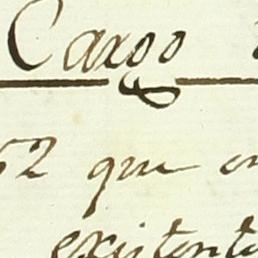 Cargo
52 que en
existente